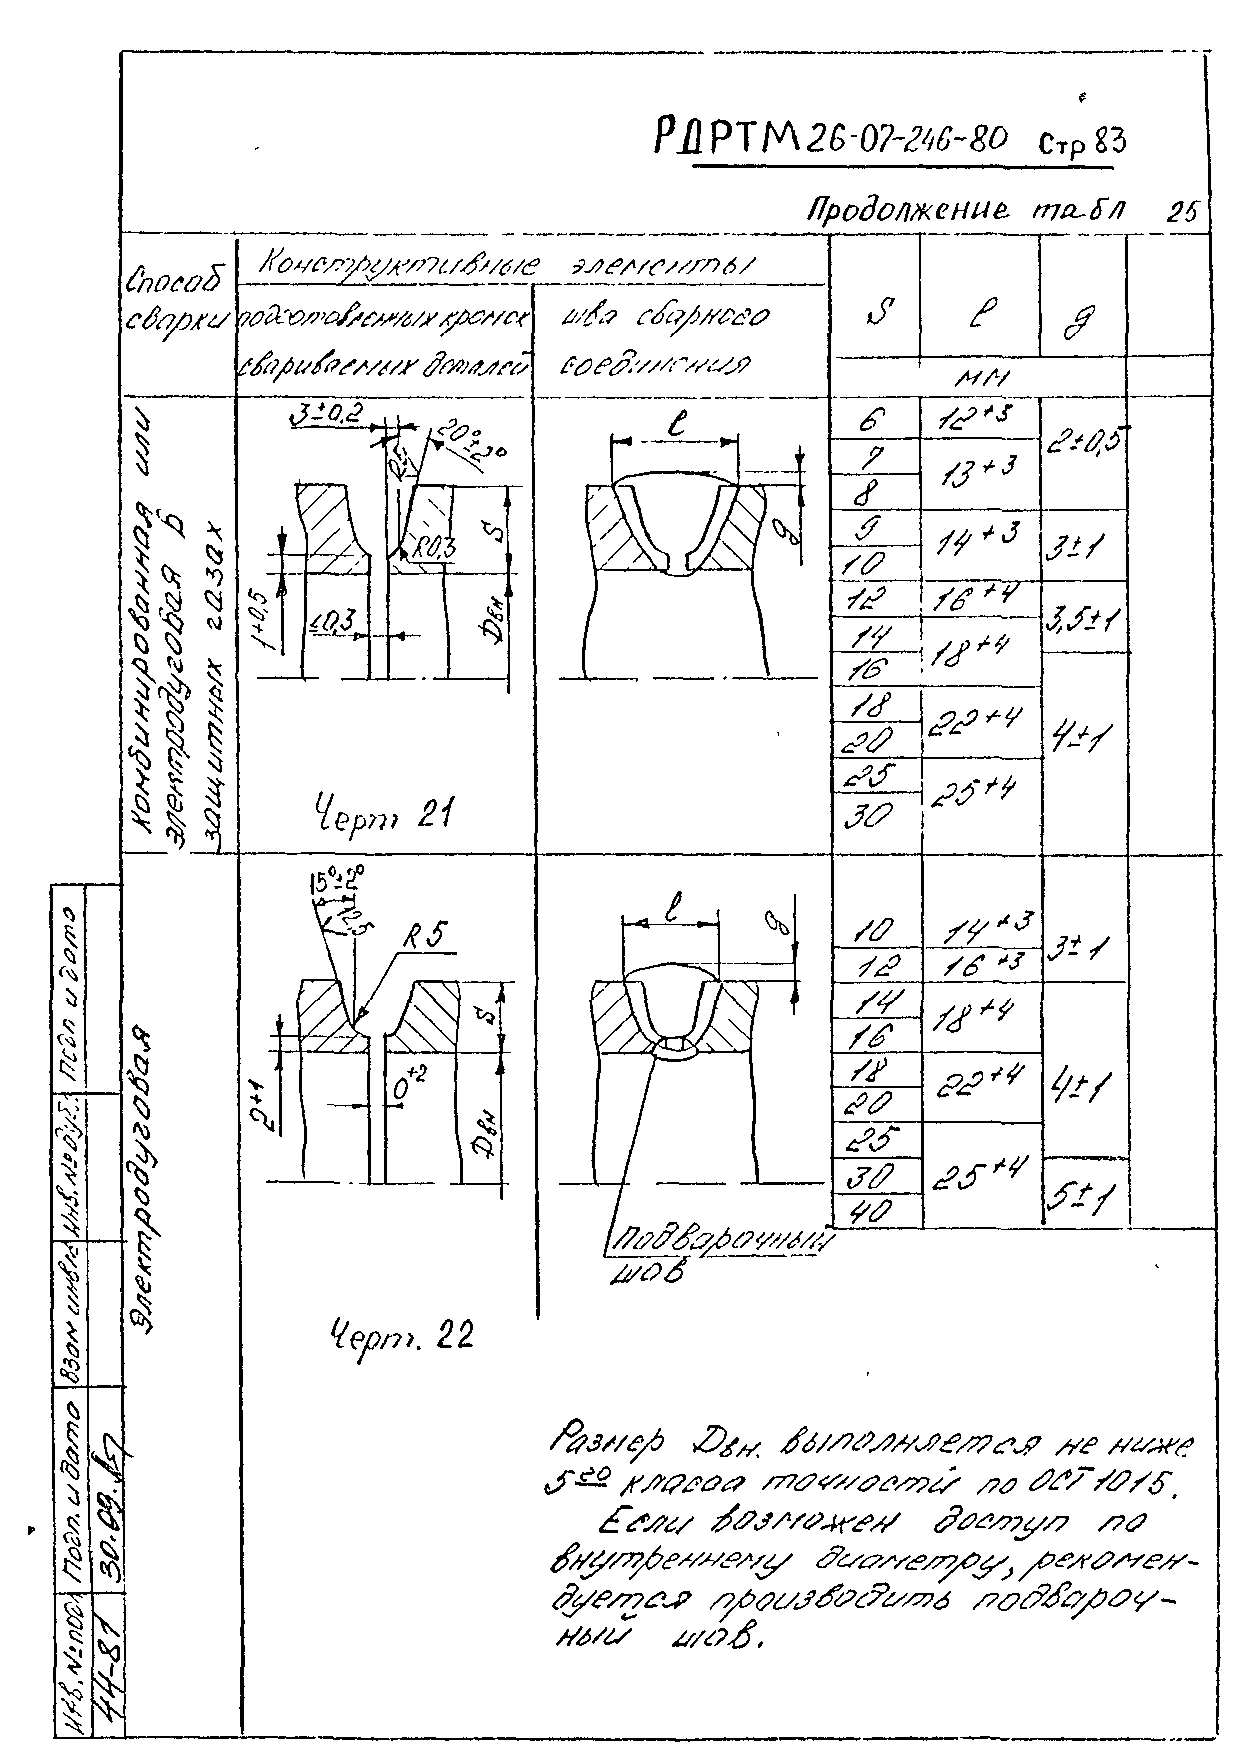 РДРТМ 26-07-246-80 Стр 83
Продолжение табл 25
Способ
сварки
Конструктивные элементы
подготовленных кромок
свариваемых деталей
шва сварного
соединения
S
ℓ
g
мм
Комбинированная или
электродуговая в
защитных газах
3±0,2
20°±2°
R0,3
S
1+0,5
≤0,3
Dвн
Черт 21
ℓ
g
6 12+3 2±0,5
7 13+3
8
9 14+3 3±1
10
12 16+4 3,5±1
14 18+4
16 4±1
18 22+4
20
25 25+4
30
Электродуговая
15°±2°
R5
S
2+1
0+2
Dвн
Черт. 22
ℓ
g
Подварочный
шов
10 14+3 3±1
12 16+3
14 18+4 4±1
16
18 22+4
20
25 25+4
30 5±1
40
Размер Dвн. выполняется не ниже
5го класса точности по ОСТ 1015.
Если возможен доступ по
внутреннему диаметру, рекомен-
дуется производить подвароч-
ный шов.
Инв. № подл
44-81
Подп. и дата
30.09.
Взам инв №
Инв. № дубл.
Подп и дата